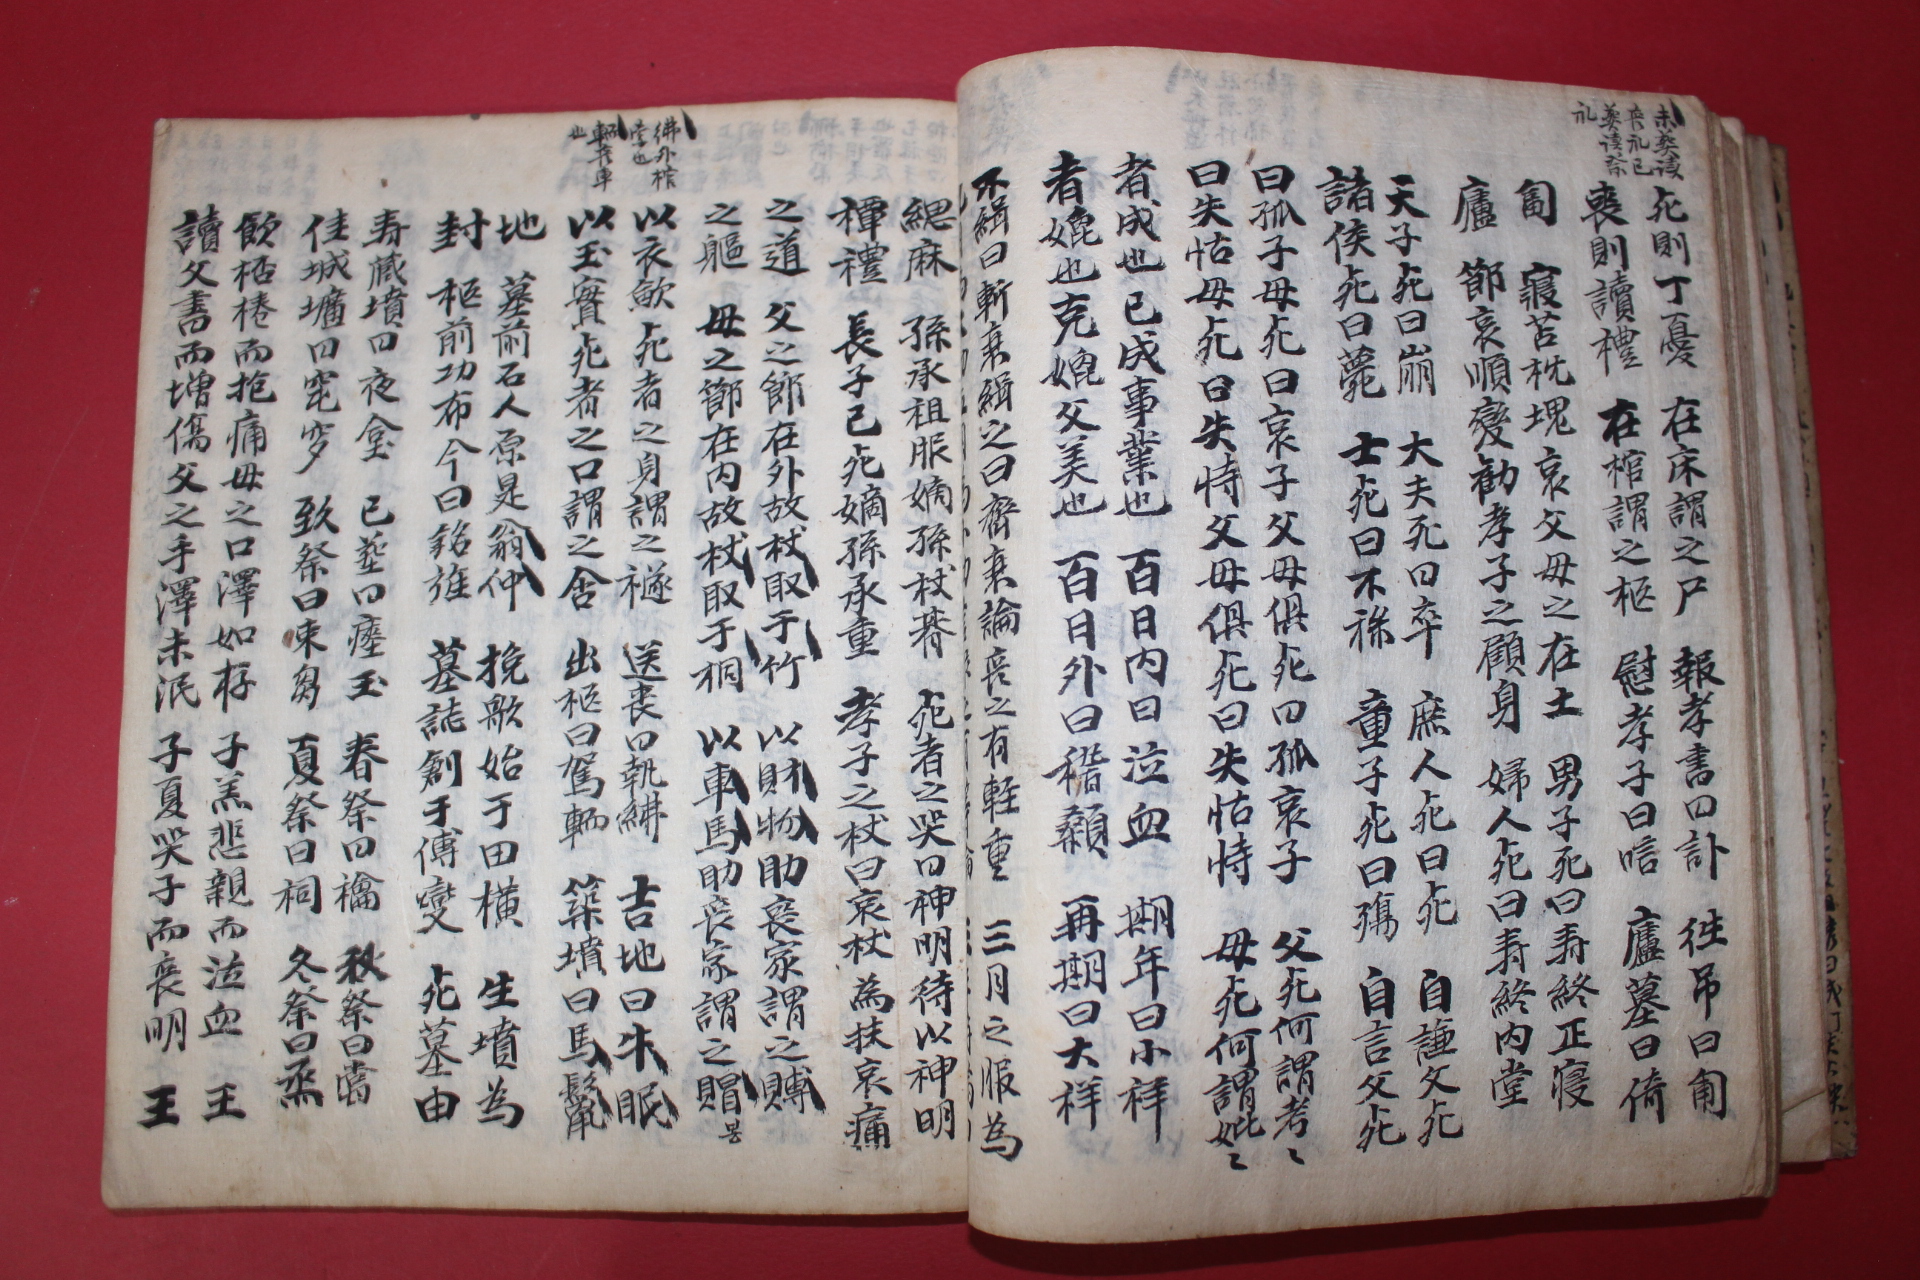 未葬讀
喪礼已
葬讀祭
礼
死則丁憂 在床謂之尸 報孝書曰訃 徃吊曰匍
喪則讀禮 在棺謂之柩 慰孝子曰唁 廬墓曰倚
匐 寢苫枕塊哀父母之在土 男子死曰寿終正寢
廬 節哀順變勸孝子之顧身 婦人死曰寿終内堂
天子死曰崩 大夫死曰卒 庶人死曰死 自謙父死
諸侯死曰薨 士死曰不祿 童子死曰殤 自言父死
曰孤子母死曰哀子父母俱死曰孤哀子 父死何謂考〻
曰失怙母死曰失恃父母俱死曰失怙恃 母死何謂妣〻
者成也已成事業也 百日内曰泣血 期年曰小祥
者媲也克媲父美也 百日外曰稽顙 再期曰大祥
不緝曰斬衰緝之曰齊衰論喪之有輕重 三月之服為
緦麻 孫承祖服嫡孫杖朞 死者之哭曰神明待以神明
禫禮 長子已死嫡孫承重 孝子之杖曰哀杖為扶哀痛
之道 父之節在外故杖取于竹 以財物助喪家謂之賻
之軀 母之節在内故杖取于桐 以車馬助喪家謂之賵 봉
紼外棺
輀喪車
也
以衣歛死者之身謂之襚 送喪曰執紼 吉地曰牛眠
以玉實死者之口謂之含 出柩曰駕輀 築墳曰馬鬣
地 墓前石人原是翁仲 挽歌始于田橫 生墳為
封 柩前功布今曰銘旌 墓誌創于傅變 死墓由
寿藏墳曰夜臺 已葬曰瘞玉 春祭曰禴 秋祭曰嘗
佳城壙曰窀穸 致祭曰束芻 夏祭曰祠 冬祭曰烝
飮桮棬而抱痛母之口澤如存 子羔悲親而泣血 王
讀父書而增傷父之手澤未泯 子夏哭子而喪明 王